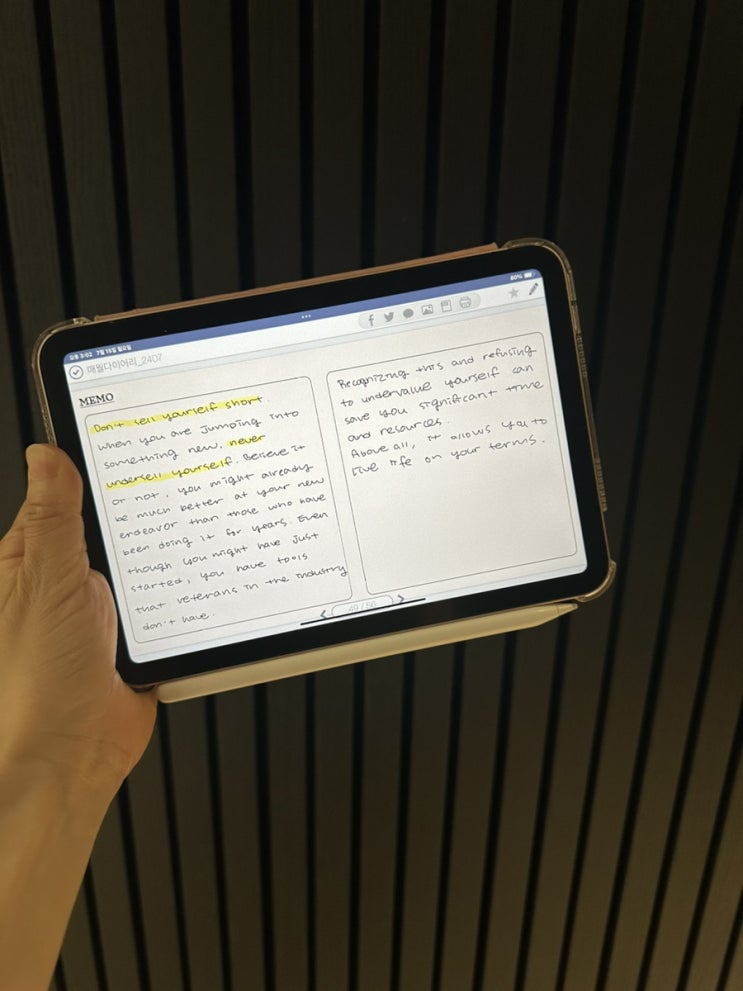 오후 3:02 7월 15일 월요일
80%
매월다이어리_2407
MEMO
Don't sell yourself short.
when you are jumping into
something new, never
undersell yourself. Believe it
or not, you might already
be much better at your new
endeavor than those who have
been doing it for years. Even
though you might have just
started, you have tools
that veterans in the industry
don't have.
Recognizing this and refusing
to undervalue yourself can
save you significant time
and resources.
Above all, it allows you to
live life on your terms.
49 / 56